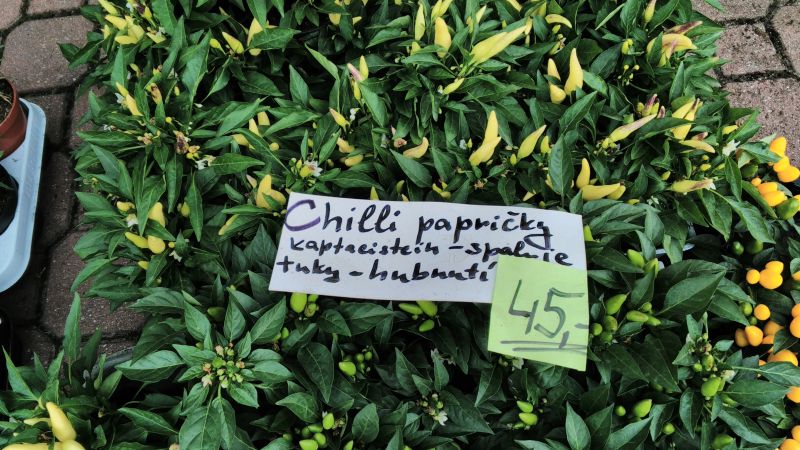 Chilli papričky
kaptacistein - spaluje
tuky - hubnutí
45,-